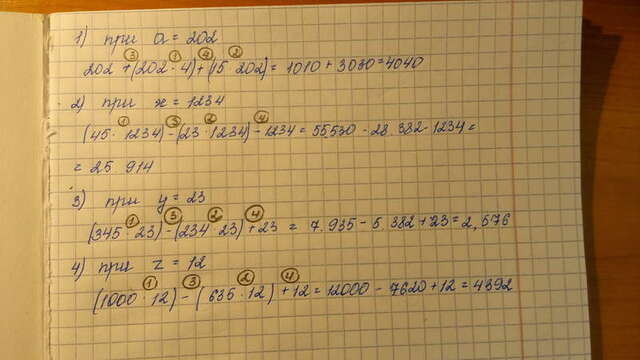 1) при a = 202
③ ① ④ ②
202 + (202 · 4) + (15 · 202) = 1010 + 3030 = 4040
2) при x = 1234
① ③ ② ④
(45 · 1234) - (23 · 1234) - 1234 = 55530 - 28 382 - 1234 =
= 25 914
3) при y = 23
① ③ ② ④
(345 · 23) - (234 · 23) + 23 = 7.935 - 5 382 + 23 = 2,576
4) при z = 12
① ③ ② ④
(1000 · 12) - (635 · 12) + 12 = 12000 - 7620 + 12 = 4392